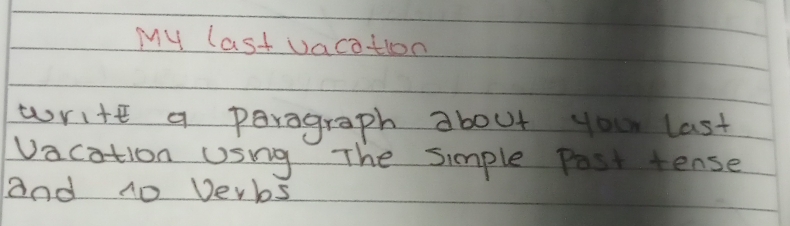 My last vacation
write a paragraph about your last
Vacation Using The simple Past tense
and 10 Verbs